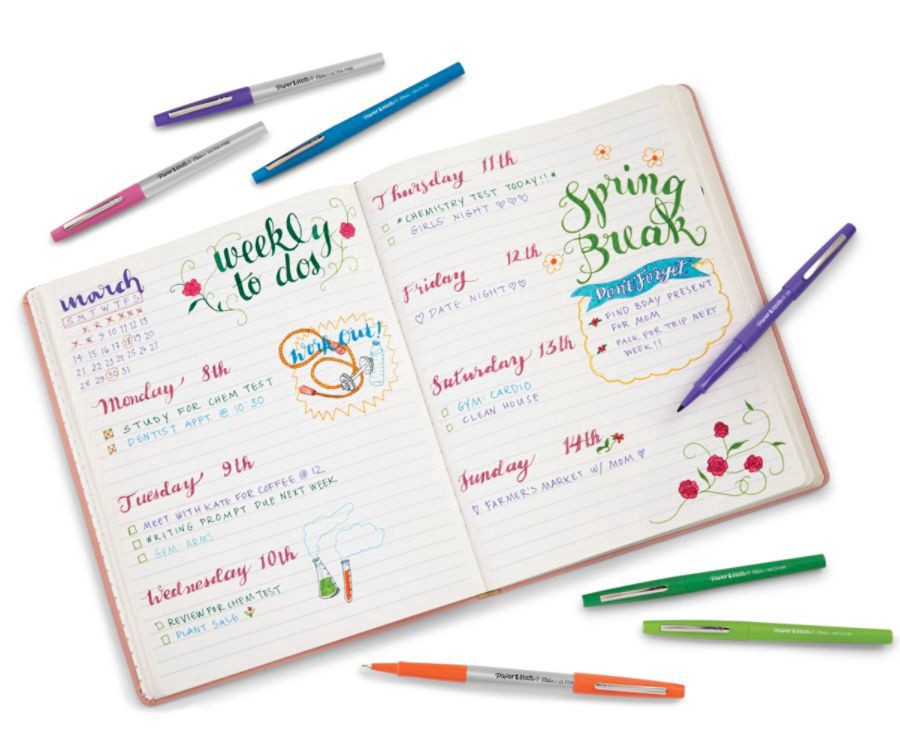 weekly
to dos
march
S M T W T F S
X X X X X X
X X 9 10 11 12 13
14 15 16 17 18 19 20
21 22 23 24 25 26 27
28 29 30 31
Monday 8th
STUDY FOR CHEM TEST
DENTIST APPT. @ 10:30
Work Out!
Tuesday 9th
MEET WITH KATE FOR COFFEE @ 12
WRITING PROMPT DUE NEXT WEEK
GYM: ARMS
Wednesday 10th
REVIEW FOR CHEM TEST
PLANT SALE
Thursday 11th
*CHEMISTRY TEST TODAY!!*
GIRLS' NIGHT ♡♡♡
Friday 12th
♡ DATE NIGHT ♡♡
Saturday 13th
GYM: CARDIO
CLEAN HOUSE
Sunday 14th
♡ FARMER'S MARKET W/ MOM ♡
Spring
Break
Don't Forget
FIND BDAY PRESENT
FOR MOM
PACK FOR TRIP NEXT
WEEK!!
Paper Mate® Flair ULTRA FINE
Paper Mate® Flair MEDIUM
Paper Mate® Flair ULTRA FINE
Paper Mate® Flair
Paper Mate® Flair MEDIUM
Paper Mate® Flair MEDIUM
Paper Mate® Flair ULTRA